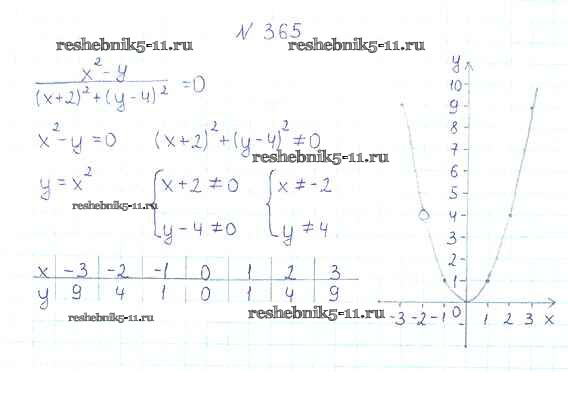 N 365
reshebnik5-11.ru reshebnik5-11.ru
x² - y
(x+2)² + (y-4)² = 0
x² - y = 0 (x+2)² + (y-4)² ≠ 0
reshebnik5-11.ru
y = x² { x+2 ≠ 0 { x ≠ -2
reshebnik5-11.ru
y-4 ≠ 0 y ≠ 4
x -3 -2 -1 0 1 2 3
y 9 4 1 0 1 4 9
reshebnik5-11.ru reshebnik5-11.ru
y
10
9
8
7
6
5
4
3
2
1
0
-3 -2 -1 1 2 3 x